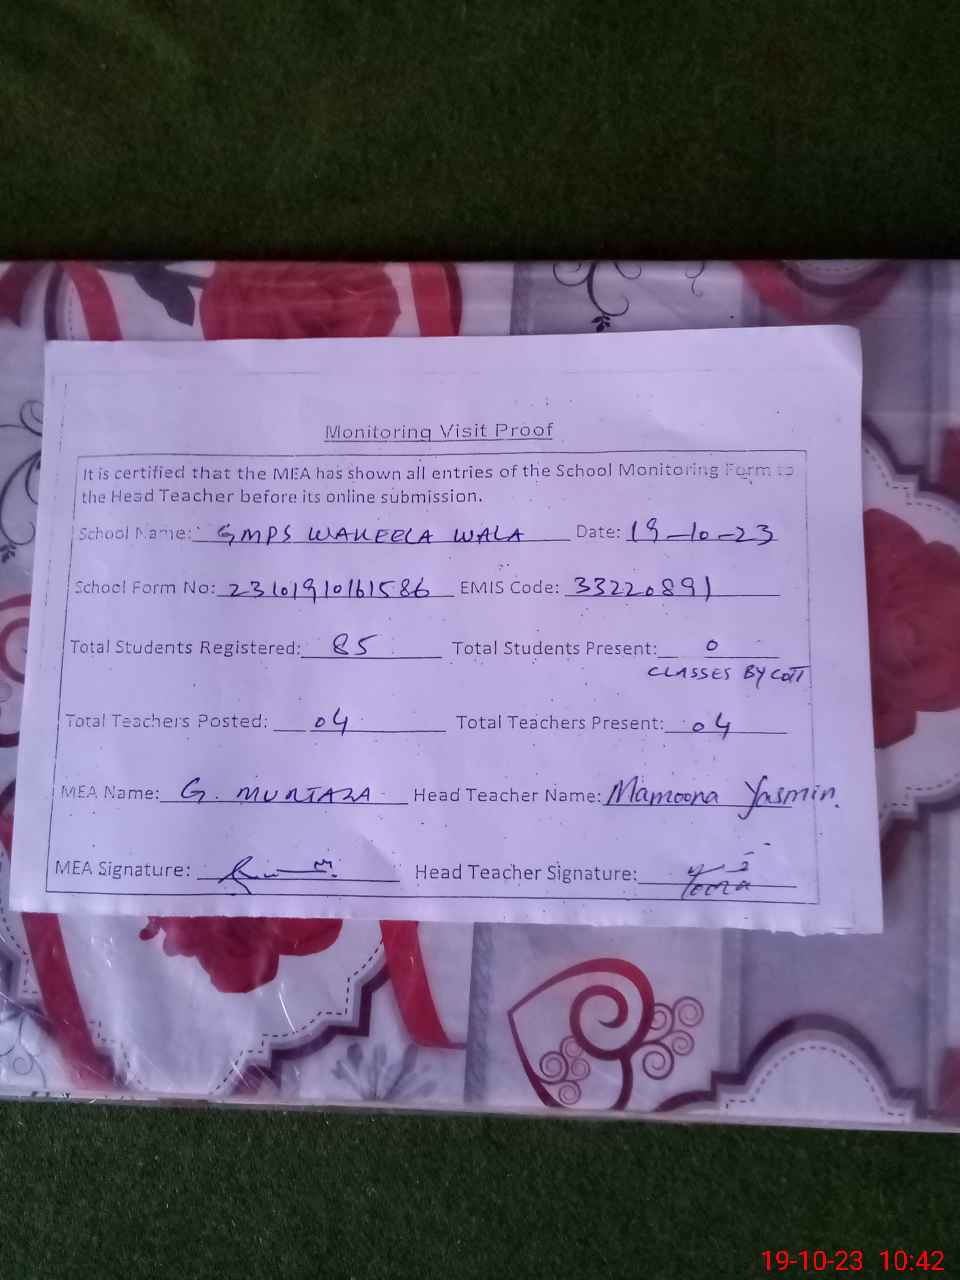 Monitoring Visit Proof
It is certified that the MEA has shown all entries of the School Monitoring Form to
the Head Teacher before its online submission.
School Name: GMPS WAKEELA WALA Date: 19-10-23
School Form No: 23101910161586 EMIS Code: 33220891
Total Students Registered: 85 Total Students Present: 0
CLASSES BYCOTT
Total Teachers Posted: 04 Total Teachers Present: 04
MEA Name: G. MURTAZA Head Teacher Name: Mamoona Yasmin.
MEA Signature: Head Teacher Signature:
19-10-23 10:42